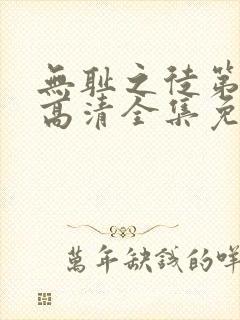 無耻之徒第
高清全集免
萬年缺錢的咩